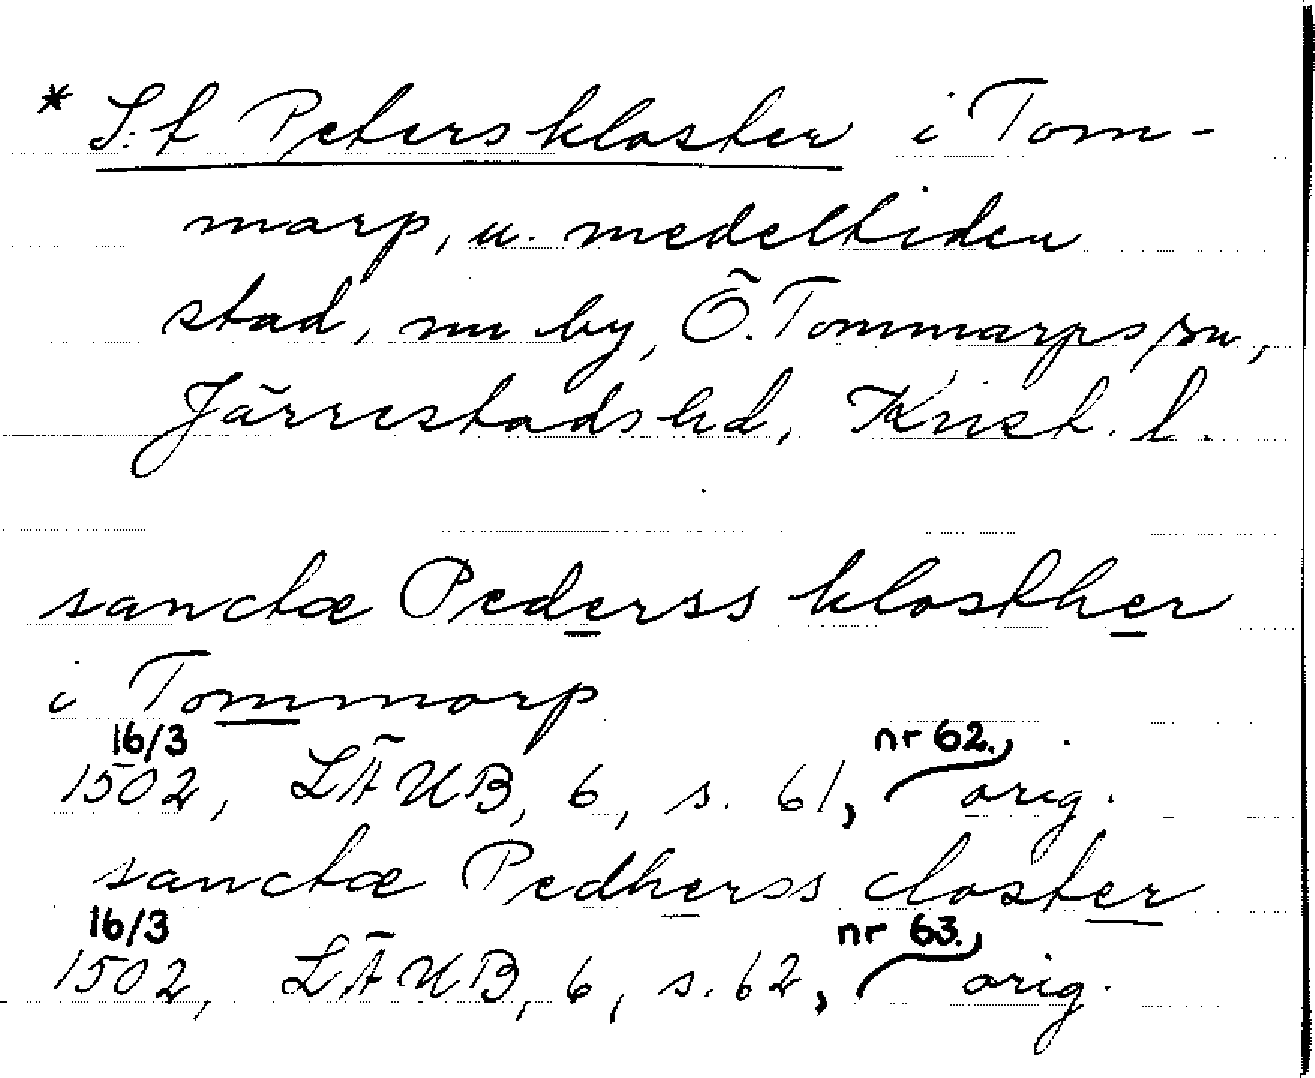 * S:t Peterskloster i Tom-
marp, u. medeltiden
stad, nu by, Ö. Tommarps sn,
Järrestads hd, Krist. l.
sanctæ Pederss klosther
i Tommorp
16/3
1502, LÄUB, 6, s. 61, nr 62., orig.
sanctæ Pedherss closter
16/3
1502, LÄUB, 6, s. 62, nr 63., orig.